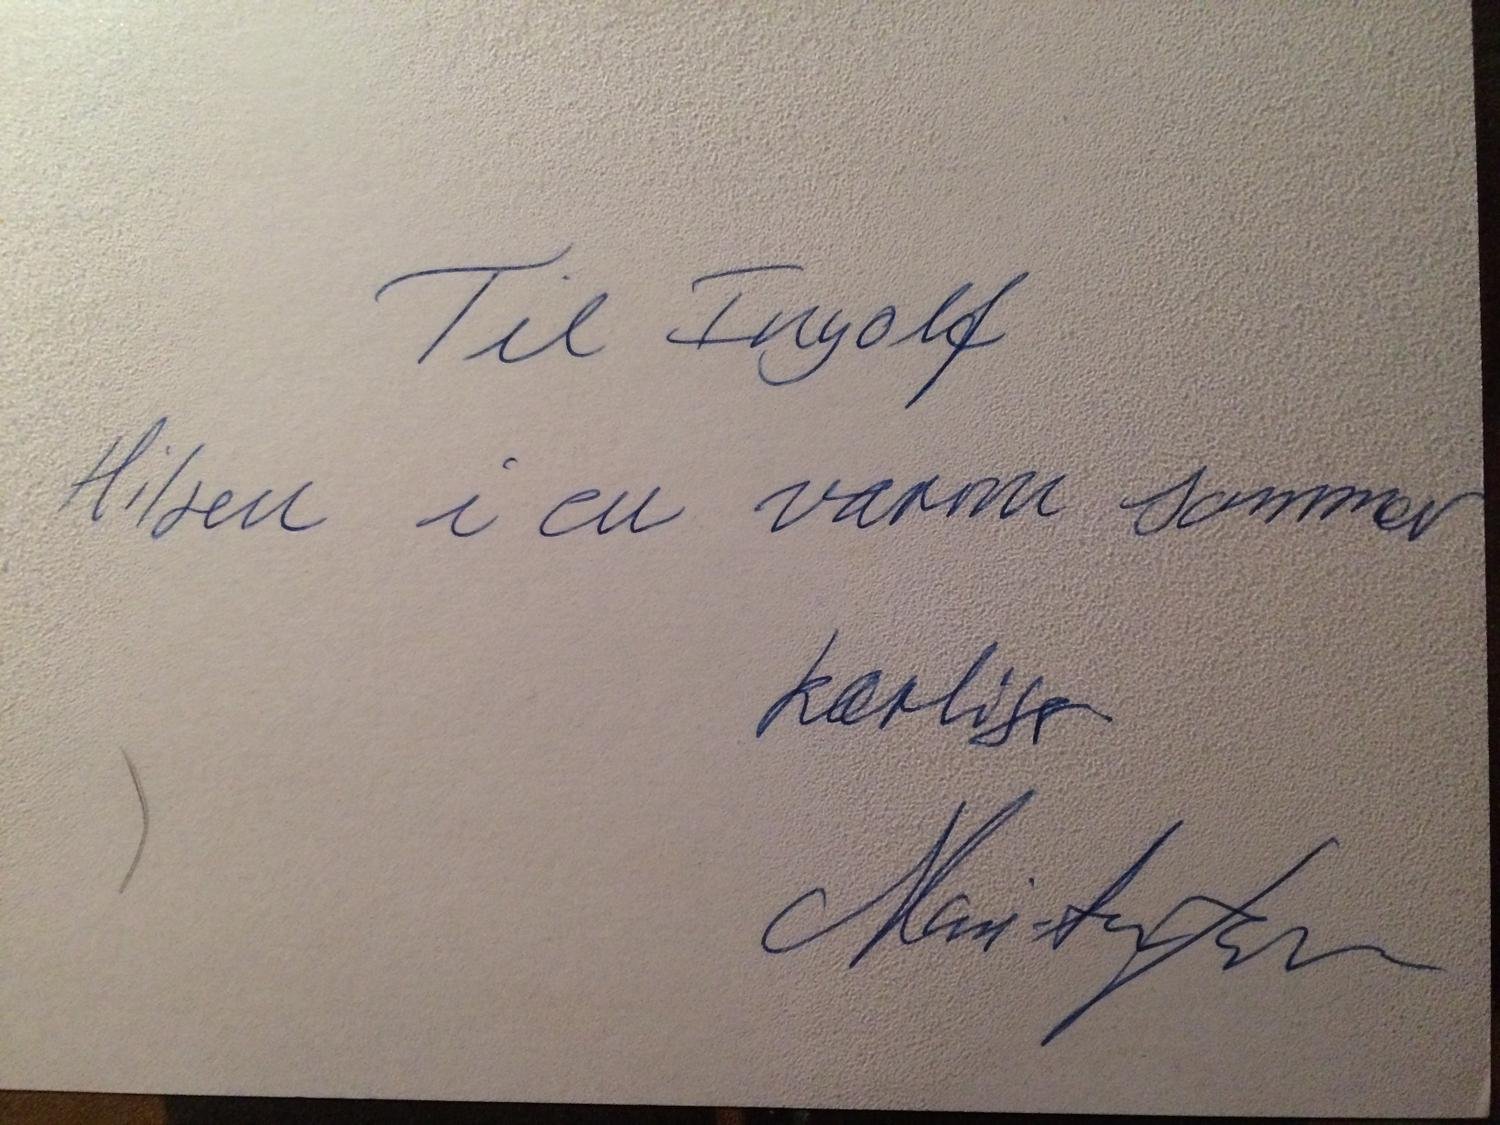 Til Ingolf
Hilsen i en varm sommer
kærligst